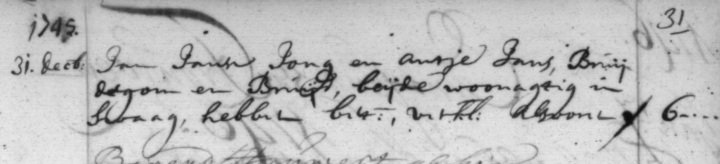 1745.
31
31. decb: Jan Jansz Jong en antje Jans, Bruij
degom en Bruijt, beijde woonagtig in
Swaag, hebben bet:, vrkl: 6 - - -